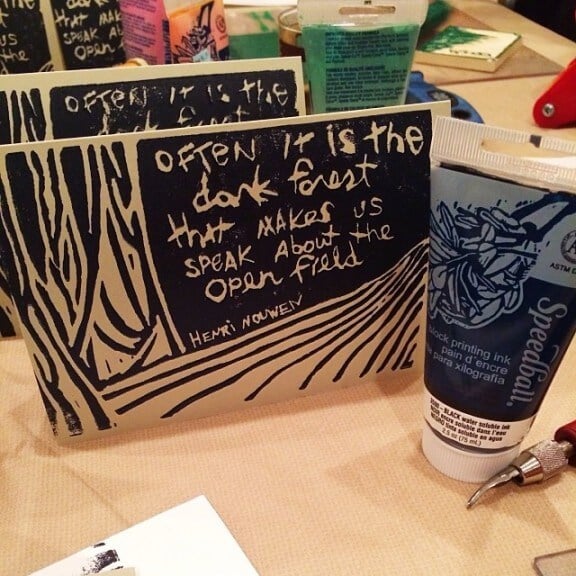 OFTEN It is the
dark forest
OFTEN It is the
dark forest
that MAKES US
SPEAK About the
Open field
HENRI NOUWEN
Speedball.
block printing ink
pain d'encre
para xilografía
BLACK water soluble ink
soluble dans l'eau
soluble en agua
2.5 oz (75 mL)
ASTM